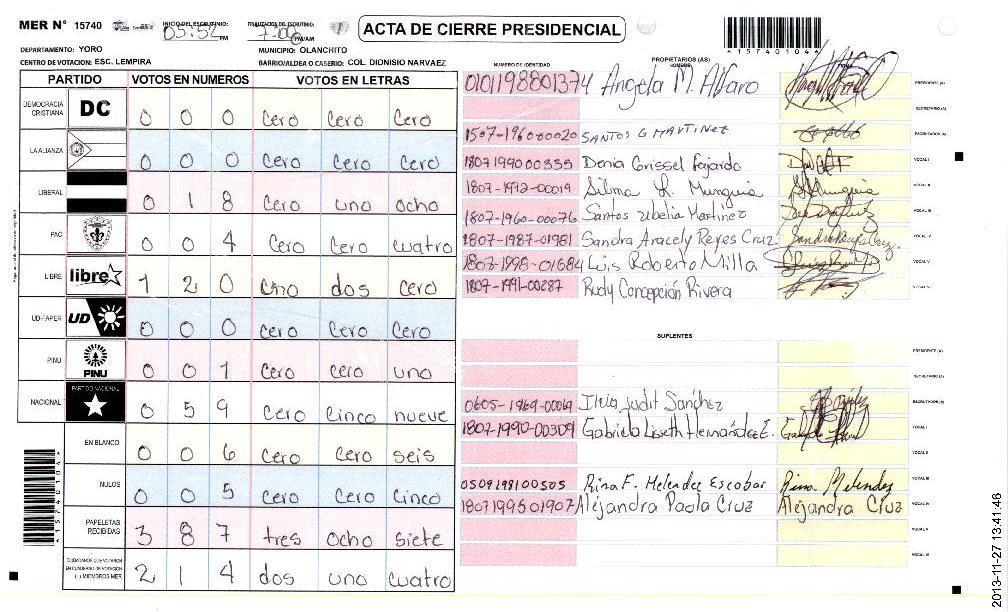 MER N° 15740 INICIO DEL ESCRUTINIO: 05:52 PM FINALIZACION DEL ESCRUTINIO: 7:00 PM/AM
ACTA DE CIERRE PRESIDENCIAL
*15740104*
DEPARTAMENTO: YORO MUNICIPIO: OLANCHITO
CENTRO DE VOTACION: ESC. LEMPIRA BARRIO/ALDEA O CASERIO: COL. DIONISIO NARVAEZ
PARTIDO VOTOS EN NUMEROS VOTOS EN LETRAS
DEMOCRACIA CRISTIANA DC 0 0 0 Cero Cero Cero
LA ALIANZA 0 0 0 Cero Cero Cero
LIBERAL 0 1 8 Cero uno ocho
PAC 0 0 4 Cero Cero cuatro
LIBRE libre 1 2 0 uno dos cero
UD-FAPER UD 0 0 0 Cero Cero Cero
PINU PINU 0 0 1 Cero cero uno
NACIONAL PARTIDO NACIONAL 0 5 9 Cero Cinco nueve
EN BLANCO 0 0 6 Cero Cero seis
NULOS 0 0 5 Cero Cero Cinco
PAPELETAS RECIBIDAS 3 8 7 tres ocho siete
CIUDADANOS QUE VOTARON EN CUADERNO DE VOTACION (-) MIEMBROS MER 2 1 4 dos uno cuatro
*15740104*
PROPIETARIOS (AS)
NUMERO DE IDENTIDAD NOMBRE
0101198801374 Angela M. Alfaro PRESIDENTE (A)
SECRETARIO (A)
1507-1960-00020 SANTOS G MARTINEZ ESCRUTADOR (A)
1807199000335 Denia Grissel Fajardo VOCAL I
1807-1972-00019 Silma L. Munguia VOCAL II
1807-1960-00076 Santos Ubelia Martinez VOCAL III
1807-1987-01981 Sandra Aracely Reyes Cruz VOCAL IV
1807-1998-01684 Luis Roberto Milla VOCAL V
1807-1991-00287 Rudy Concepción Rivera VOCAL VI
SUPLENTES
PRESIDENTE (A)
SECRETARIO (A)
0605-1969-00069 Ilvia Judit Sanchez ESCRUTADOR (A)
1807-1990-00309 Gabriela Liseth Hernández E. VOCAL I
VOCAL II
0509198100505 Rina F. Melendez Escobar Rina Melendez VOCAL III
1807199501907 Alejandra Paola Cruz Alejandra Cruz VOCAL IV
VOCAL V
VOCAL VI
2013-11-27 13:41:46